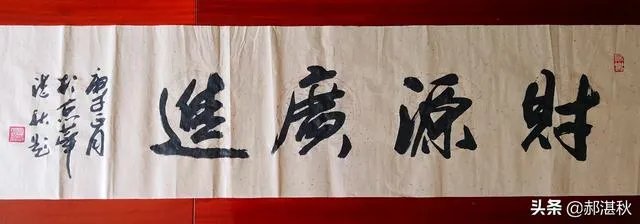 財源廣進
庚子正月
於京華
湛秋題
头条 @郝湛秋